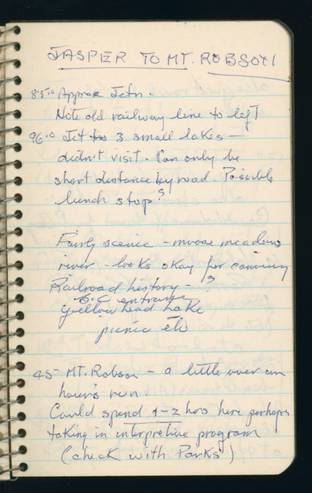 JASPER TO MT. ROBSON
85.0 Approx Jctn.
Note old railway line to left
96.0 Jct to 3 small lakes -
didn't visit. Can only be
short distance by road. Possible
lunch stop?
Fairly scenic - moose meadows
river - looks okay for canoeing
Railroad history - ?
B.C. entrance
Yellowhead Lake
picnic etc
45 - Mt. Robson - a little over an
hour's run.
Could spend 1-2 hrs here perhaps
taking in interpretive program
(check with Parks)